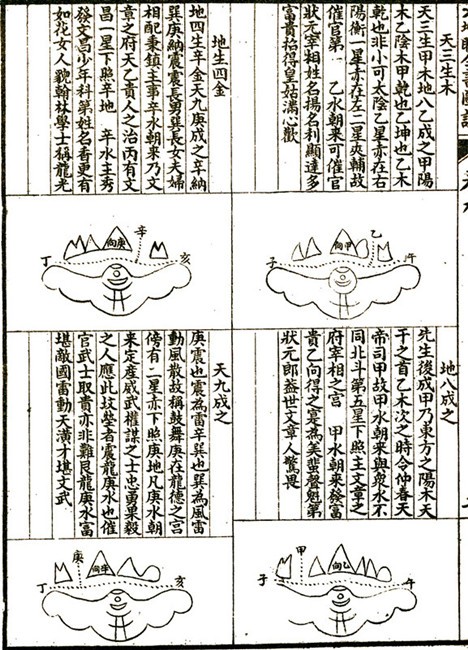 天三生木
天三生甲木地八乙成之甲陽
木乙陰木甲乾也乙坤也乙木
乾也非小可太陰乙星亦在右
陽衡一星亦在左二星夾輔故
催官第一 乙水朝來可催官
狀元宰相姓名揚名利顯達多
富貴招得皇姑滿心歡
午
乙
向甲
子
地生四金
地四生辛金天九庚成之辛納
巽庚納震震長男巽長女夫婦
相配秉鎮主事辛水朝來乃文
章之府天乙貴人之治丙有文
昌一星下照辛地 辛水主秀
發文昌少年科第姓名香更有
如花女人歡翰林學士稱龍光
亥
辛
向庚
丁
地八成之
先生後成甲乃東方之陽木天
干之首乙木次之時令仲春天
帝司甲故甲水朝來與眾水不
同北斗第五星下照主文章之
府宰相之宮 甲水朝來發富
貴乙向得之寔為美蜚聲魁第
狀元郎蓋世文章人驚畏
午
向乙
甲
子
天九成之
庚震也震為雷辛巽也巽為風雷
動風散故稱鼓舞庚在龍德之宮
傍有二星亦下照庚地凡庚水朝
來定產威武權謀之士忠勇果毅
之人應此坟塋者震龍庚水也催
官武士取貴亦非難艮龍庚水富
堪敵國雷動天潢才堪文武
亥
向辛
庚
丁